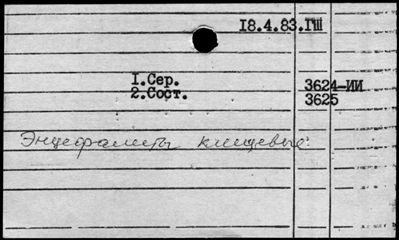 18.4.83.IШ
1.Сер.
2.Сост.
3624-ИИ
3625
Энцефалиты клещевые